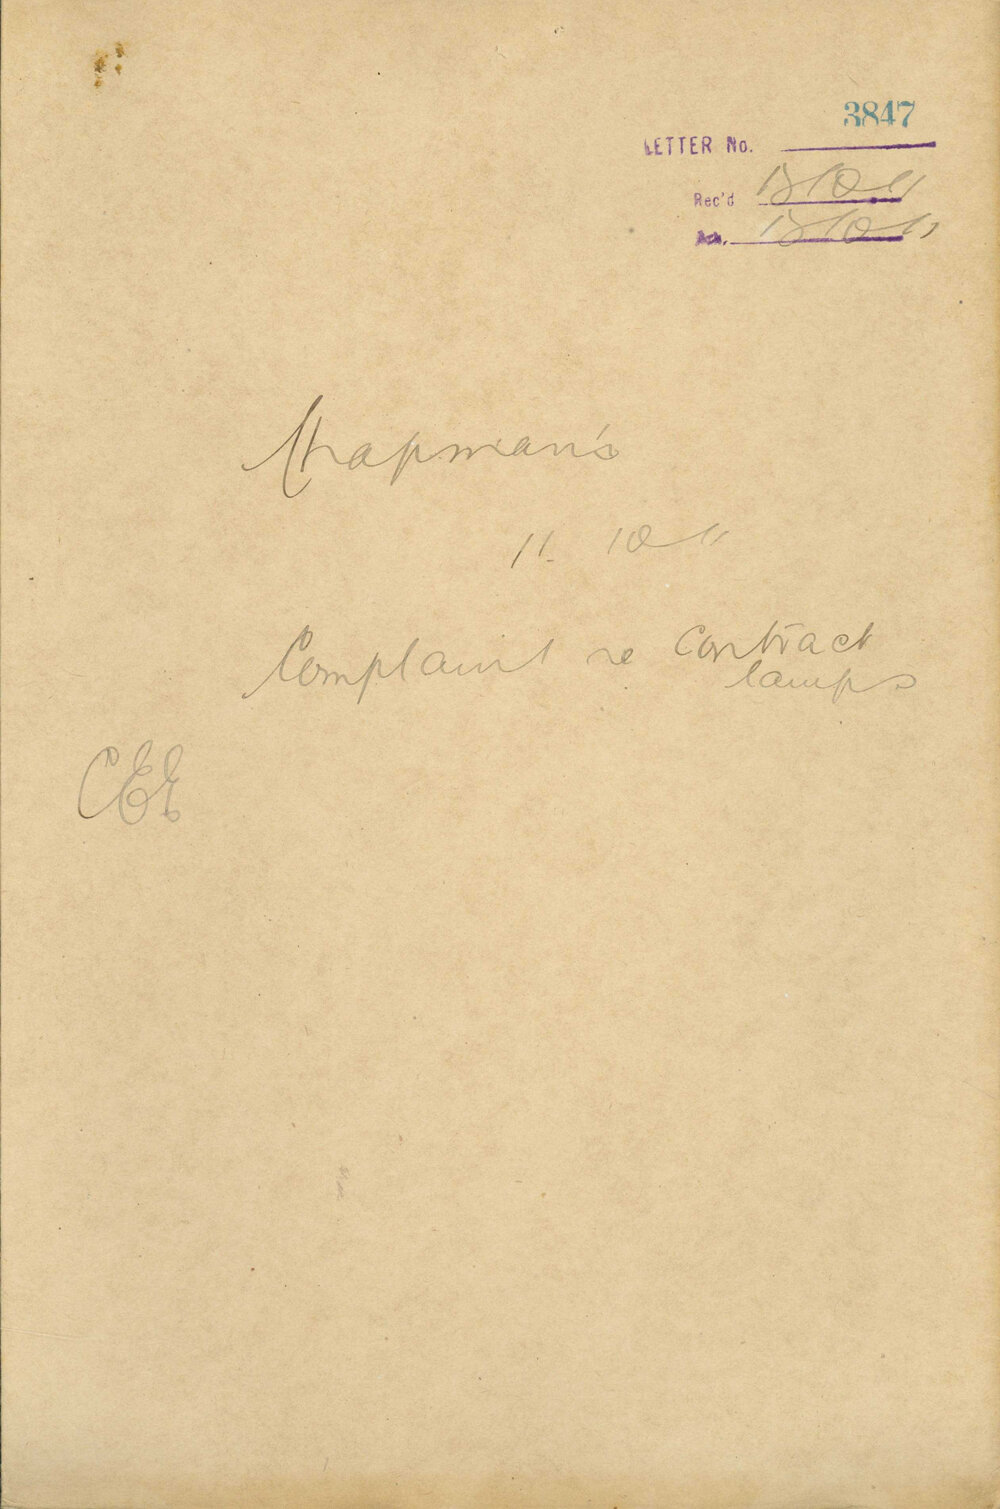 3847
LETTER No.
Rec'd
Chapman's
11. 10 11
Complaint re Contract
lamps
CEE